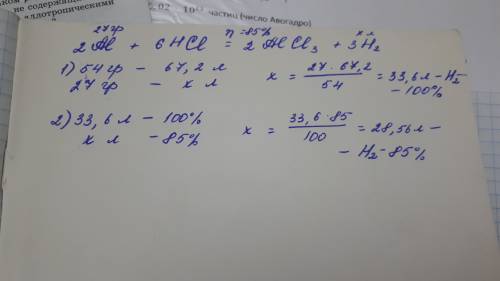 не содержащи
аллотропическими
5,02 10²³ частиц (число Авогадро)
27гр η=85% x л
2Al + 6HCl = 2AlCl₃ + 3H₂
1) 54гр – 67,2 л
27гр – x л
x = 27·67,2 / 54 = 33,6 л – H₂
– 100%
2) 33,6 л – 100%
x л – 85%
x = 33,6·85 / 100 = 28,56 л –
– H₂ – 85%